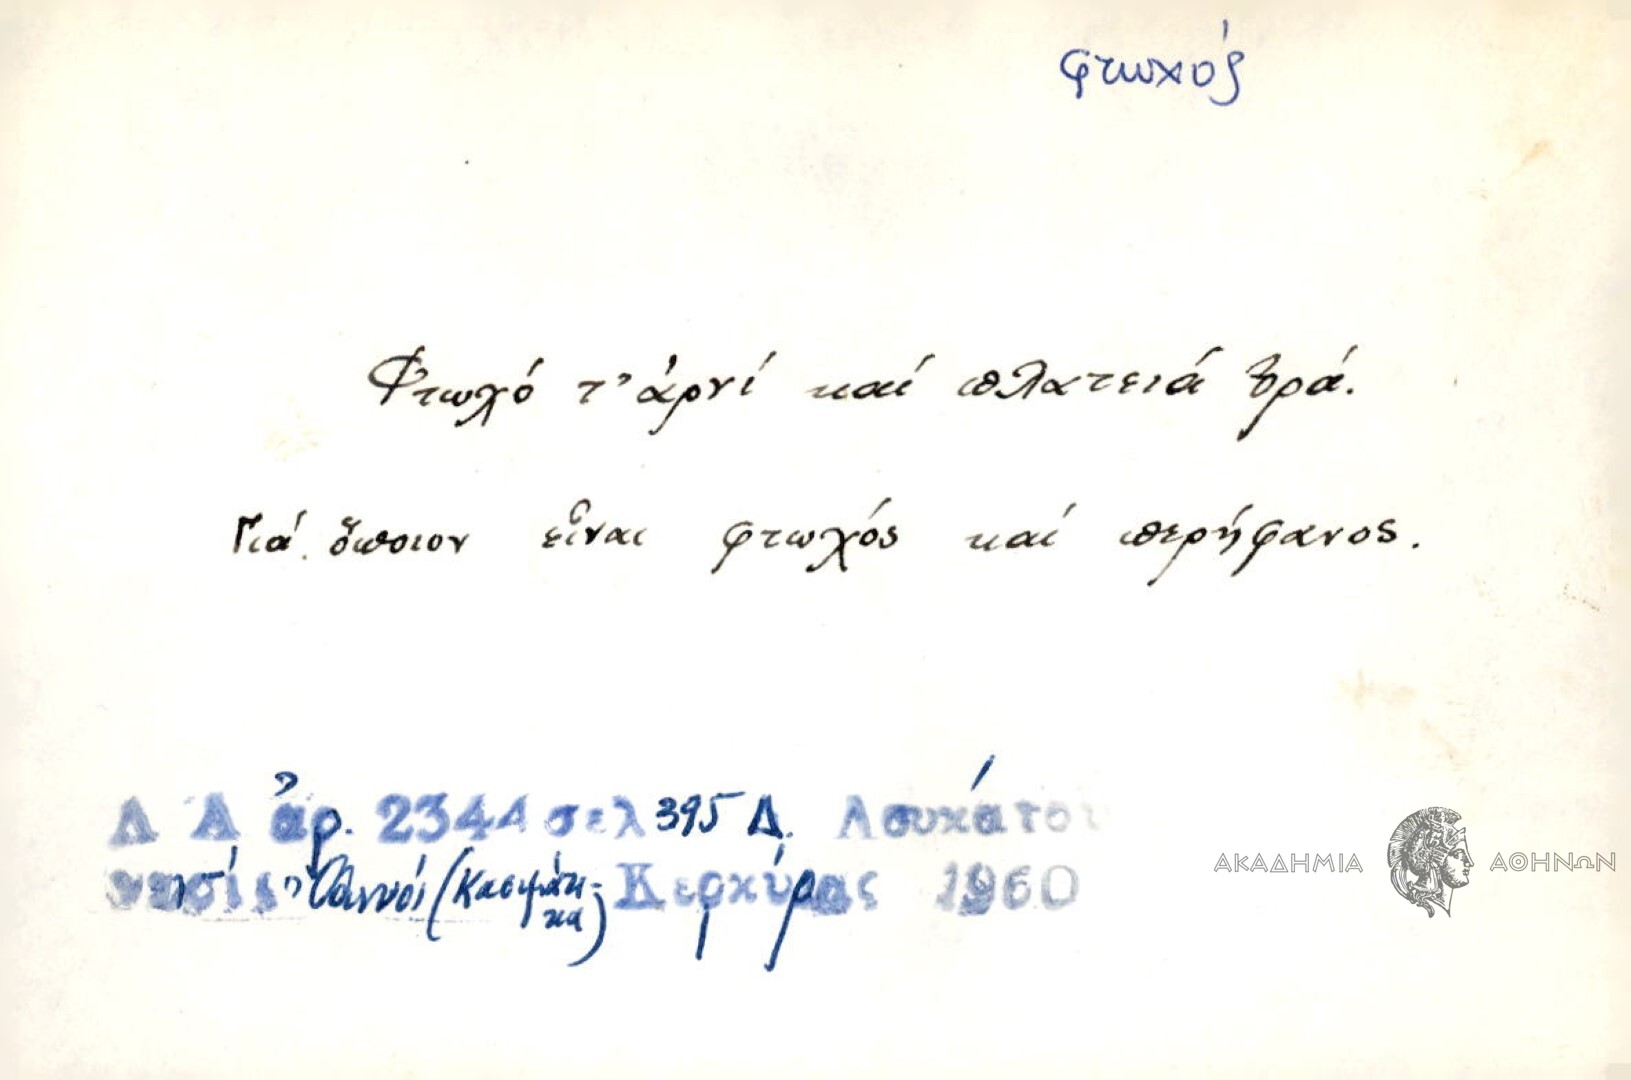 φτωχός
Φτωχό τ' ἀρνί καί πλατειά ἡ ὀρά.
Γιά ὅποιον εἶναι φτωχός καί περήφανος.
Λ Α ἀρ. 2344 σελ 395 Δ. Λουκάτου
νησί Ὀθωνοί Κερκύρας 1960
ΑΚΑΔΗΜΙΑ ΑΘΗΝΩΝ